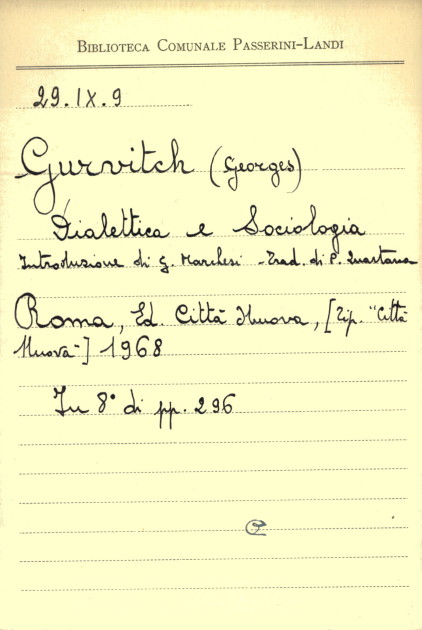 BIBLIOTECA COMUNALE PASSERINI-LANDI
29.IX.9
Gurvitch (Georges)
Dialettica e Sociologia
Introduzione di G. Marchesi - Trad. di P. Quartana
Roma, Ed. Città Nuova, [Tip. "Città
Nuova"] 1968
In 8° di pp. 296